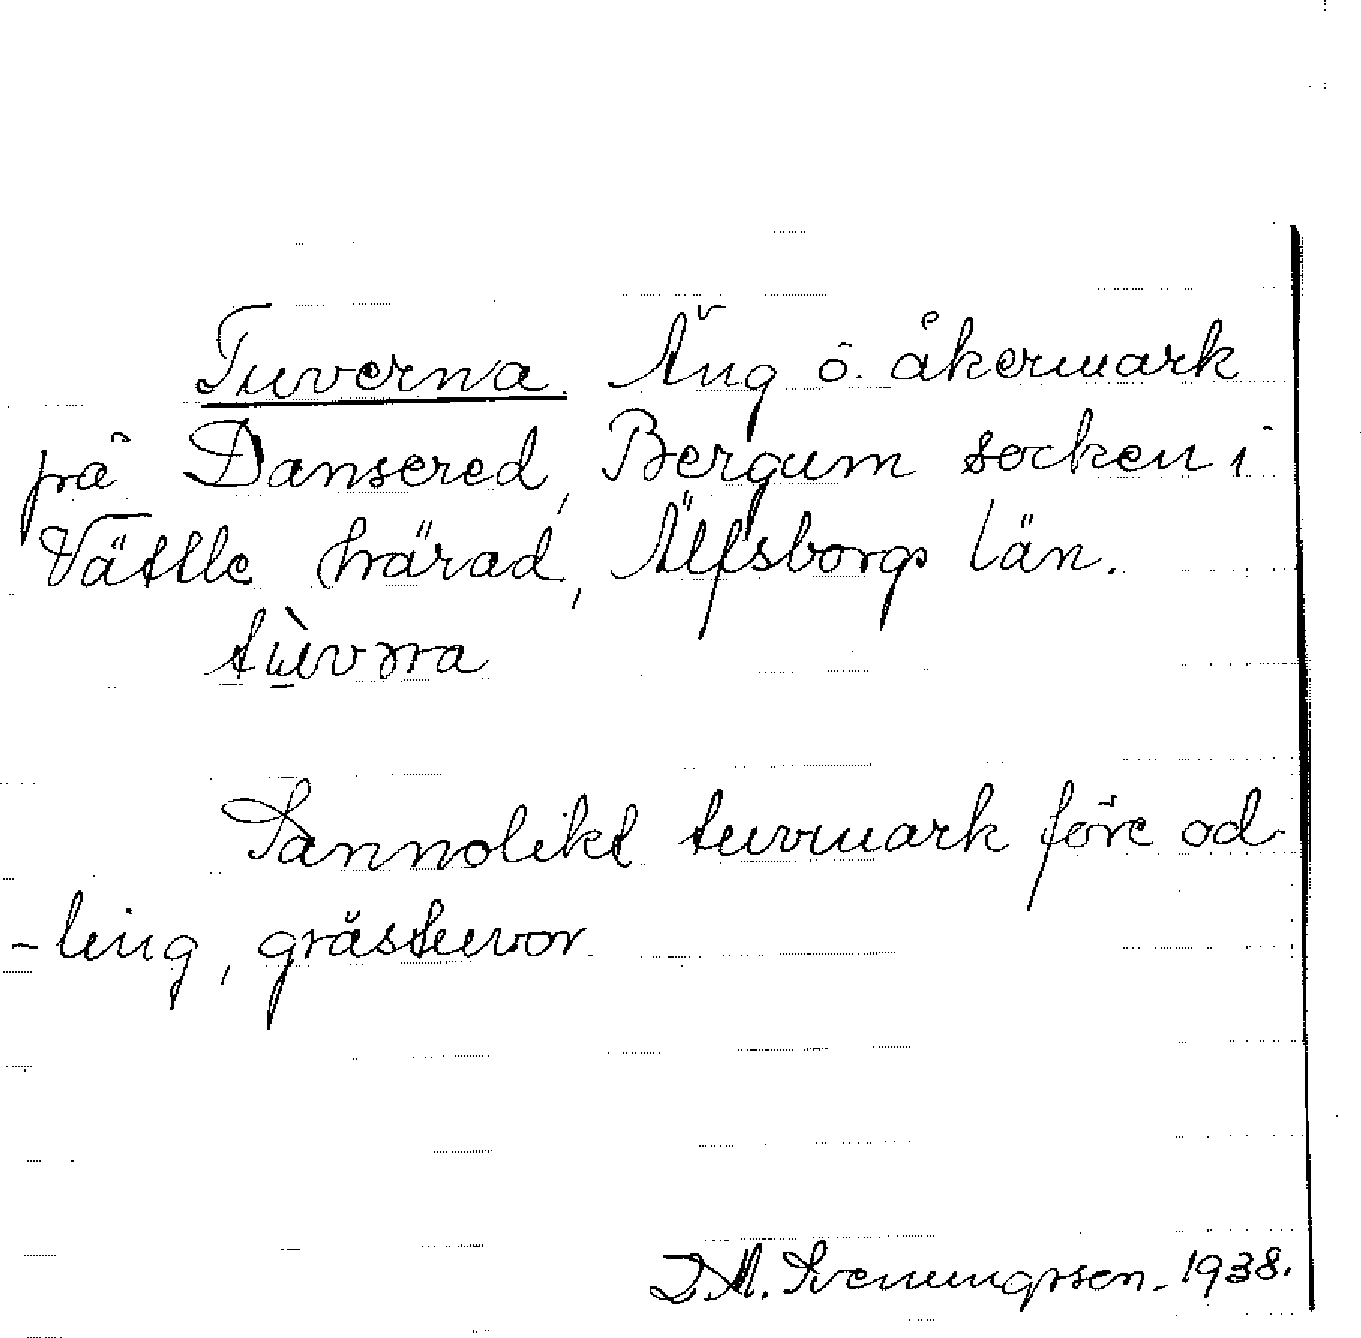 Tuverna. Äng o. åkermark
på Dansered, Bergum socken i
Vättle härad, Älfsborgs län.
Sannolikt tuvmark före od
-ling, grästuvor
D.M. Svenungsson. 1938.